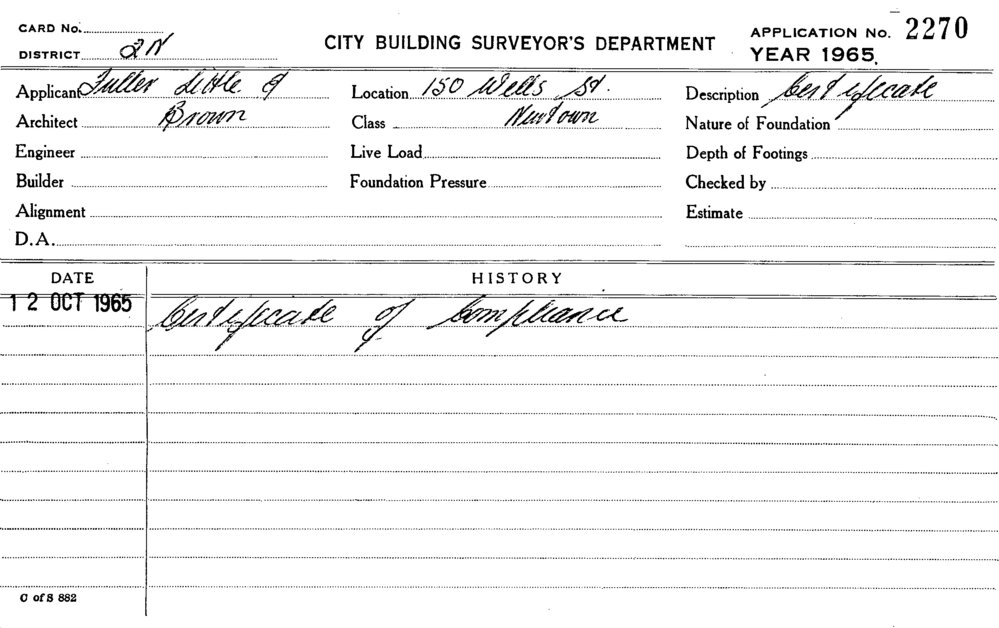 CARD No.
DISTRICT 2N
CITY BUILDING SURVEYOR'S DEPARTMENT
APPLICATION No. 2270
YEAR 1965.
Applicant Fuller Little &
Brown
Location 150 Wells St.
Newtown
Description Certificate
Architect
Class
Nature of Foundation
Engineer
Live Load
Depth of Footings
Builder
Foundation Pressure
Checked by
Alignment
Estimate
D.A.
DATE
HISTORY
12 OCT 1965
Certificate of Compliance
C of S 882